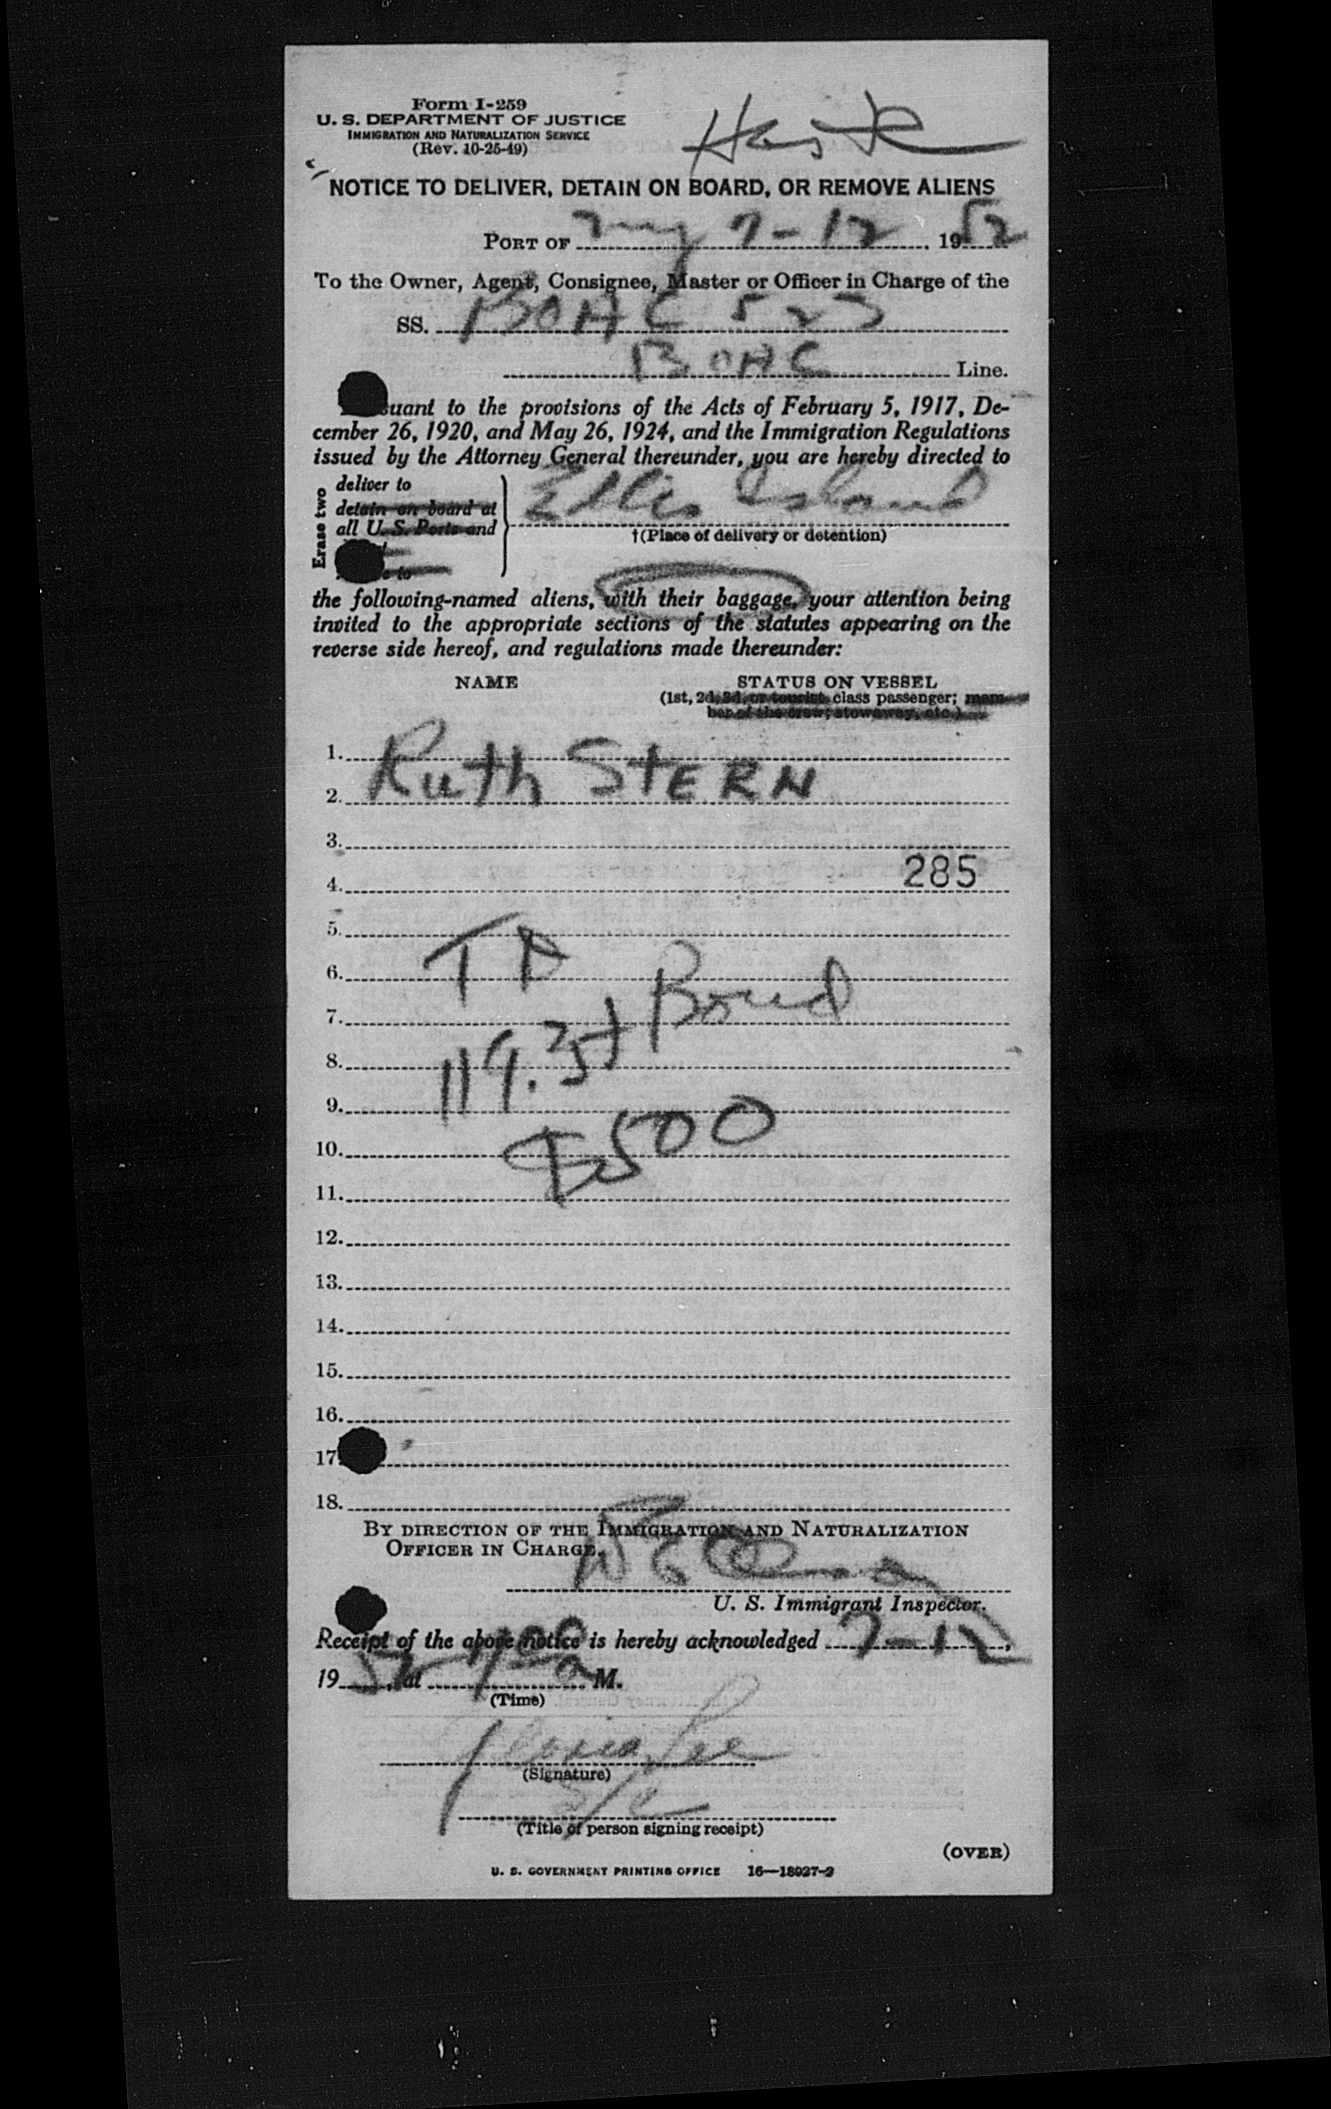 Form I-259
U. S. DEPARTMENT OF JUSTICE
IMMIGRATION AND NATURALIZATION SERVICE
(Rev. 10-25-49)
NOTICE TO DELIVER, DETAIN ON BOARD, OR REMOVE ALIENS
PORT OF NY 7-12, 1952
To the Owner, Agent, Consignee, Master or Officer in Charge of the
SS. BOAC 523
BOAC Line.
uant to the provisions of the Acts of February 5, 1917, De-
cember 26, 1920, and May 26, 1924, and the Immigration Regulations
issued by the Attorney General thereunder, you are hereby directed to
Erase two
deliver to
detain on board at
all U.S. Ports and
Ellis Island
†(Place of delivery or detention)
to
the following-named aliens, with their baggage, your attention being
invited to the appropriate sections of the statutes appearing on the
reverse side hereof, and regulations made thereunder:
NAME STATUS ON VESSEL
(1st, 2d, 3d, or tourist class passenger; mem-
ber of the crew; stowaway, etc.)
1.
2. Ruth STERN
3.
4. 285
5.
6. TD
7. Bond
8. 119.3t
9.
10. $500
11.
12.
13.
14.
15.
16.
17
18.
BY DIRECTION OF THE IMMIGRATION AND NATURALIZATION
OFFICER IN CHARGE,
U. S. Immigrant Inspector.
Receipt of the above notice is hereby acknowledged 7-12,
1952, at M.
(Time)
(Signature)
(Title of person signing receipt)
(OVER)
U. S. GOVERNMENT PRINTING OFFICE 16—18027-2